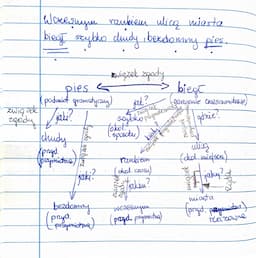 Wczesnym rankiem ulicą miasta
biegł szybko chudy, bezdomny pies.
związek zgody
pies biegł
(podmiot gramatyczny) (orzeczenie czasownikowe)
związek
zgody
jaki? jak? gdzie?
szybko
(okol.
sposobu)
chudy
(przyd.
przymiotna)
związek zgody
jaki?
rankiem
(okol. czasu)
ulicą
(okol. miejsca)
jakim? jaką?
bezdomny
(przyd.
przymiotna)
wczesnym
(przyd. przymiotna)
miasta
(przyd.
rzeczowna)